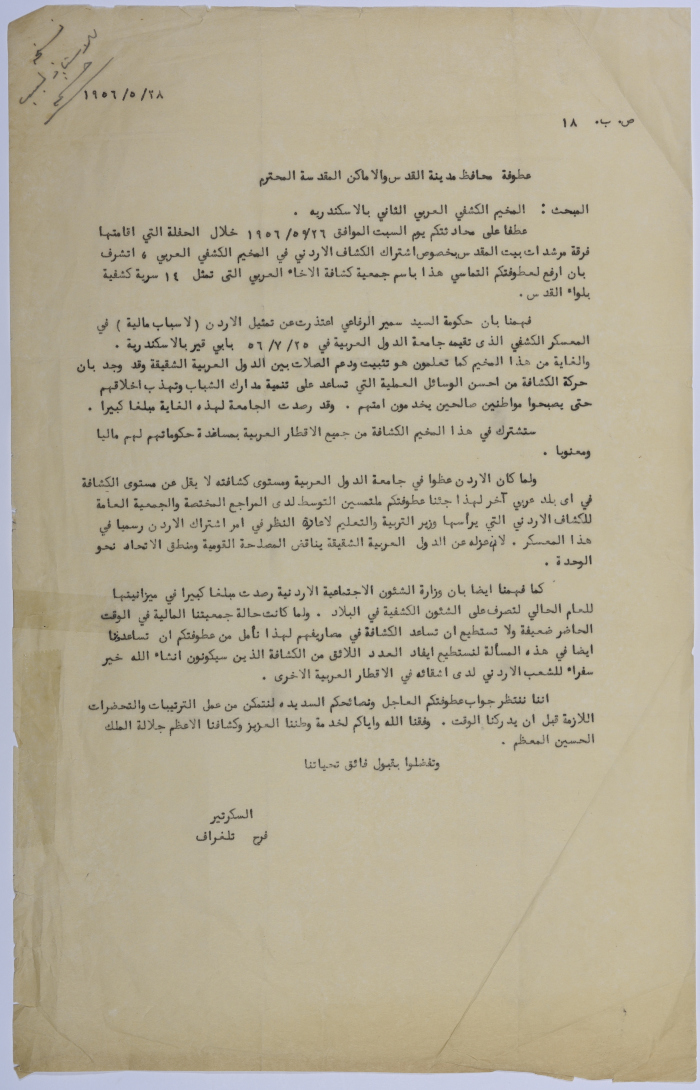 نسخة
للاستاذ
١٩٥٦/٥/٢٨
ص٠ ب٠ ١٨
عطوفة محافظ مدينة القدس والاماكن المقدسة المحترم
المبحث : المخيم الكشفي العربي الثاني بالاسكندريه .
عطفا على محادثتكم يوم السبت الموافق ١٩٥٦/٥/٢٦ خلال الحفلة التي اقامتها
فرقة مرشدات بيت المقدس بخصوص اشتراك الكشاف الاردني في المخيم الكشفي العربي ، اتشرف
بان ارفع لعطوفتكم التماسي هذا باسم جمعية كشافة الاخاء العربي التى تمثل ١٤ سرية كشفية
بلواء القدس .
فهمنا بان حكومة السيد سمير الرفاعي اعتذرت عن تمثيل الاردن ( لاسباب مالية ) في
المعسكر الكشفي الذى تقيمه جامعة الدول العربية في ٥٦/٧/٢٥ بابي قير بالاسكندرية .
والغاية من هذا المخيم كما تعلمون هو تثبيت ودعم الصلات بين الدول العربية الشقيقة وقد وجد بان
حركة الكشافة من احسن الوسائل العملية التي تساعد على تنمية مدارك الشباب وتهذب اخلاقهم
حتى يصبحوا مواطنين صالحين يخدمون امتهم . وقد رصدت الجامعة لهذه الغاية مبلغا كبيرا .
ستشترك في هذا المخيم الكشافة من جميع الاقطار العربية بمساعدة حكوماتهم لهم ماليا
ومعنويا .
ولما كان الاردن عظوا في جامعة الدول العربية ومستوى كشافته لا يقل عن مستوى الكشافة
في اى بلد عربي آخر لهذا جئنا عطوفتكم ملتمسين التوسط لدى المراجع المختصة والجمعية العامة
للكشاف الاردني التي يرأسها وزير التربية والتعليم لاعادة النظر في امر اشتراك الاردن رسميا في
هذا المعسكر . لان عزله عن الدول العربية الشقيقة يناقض المصلحة القومية ومنطق الاتحاد نحو
الوحدة .
كما فهمنا ايضا بان وزارة الشئون الاجتماعية الاردنية رصدت مبلغا كبيرا في ميزانيتها
للعام الحالي لتصرف على الشئون الكشفية في البلاد . ولما كانت حالة جمعيتنا المالية في الوقت
الحاضر ضعيفة ولا تستطيع ان تساعد الكشافة في مصاريفهم لهذا نأمل من عطوفتكم ان تساعدونا
ايضا في هذه المسألة لنستطيع ايفاد العدد اللائق من الكشافة الذين سيكونون انشاء الله خير
سفراء للشعب الاردني لدى اشقائه في الاقطار العربية الاخرى .
اننا ننتظر جواب عطوفتكم العاجل ونصائحكم السديده لنتمكن من عمل الترتيبات والتحضرات
اللازمة قبل ان يدركنا الوقت . وفقنا الله واياكم لخدمة وطننا العزيز وكشافنا الاعظم جلالة الملك
الحسين المعظم .
وتفضلوا بقبول فائق تحياتنا
السكرتير
فرج تلغراف